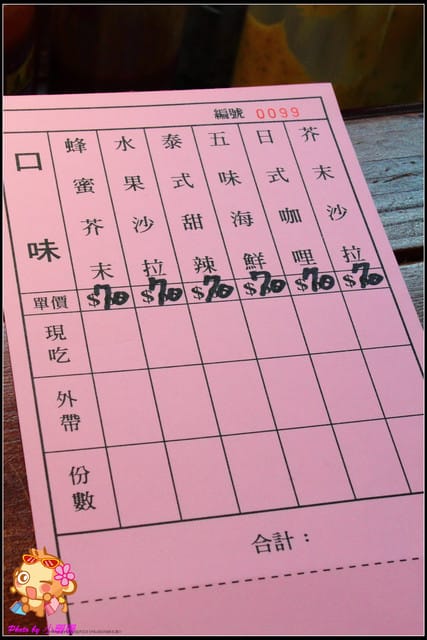 編號 0099
口味
蜂蜜芥末
水果沙拉
泰式甜辣
五味海鮮
日式咖哩
芥末沙拉
單價 $70 $70 $70 $70 $70 $70
現吃
外帶
份數
合計：
Photo by